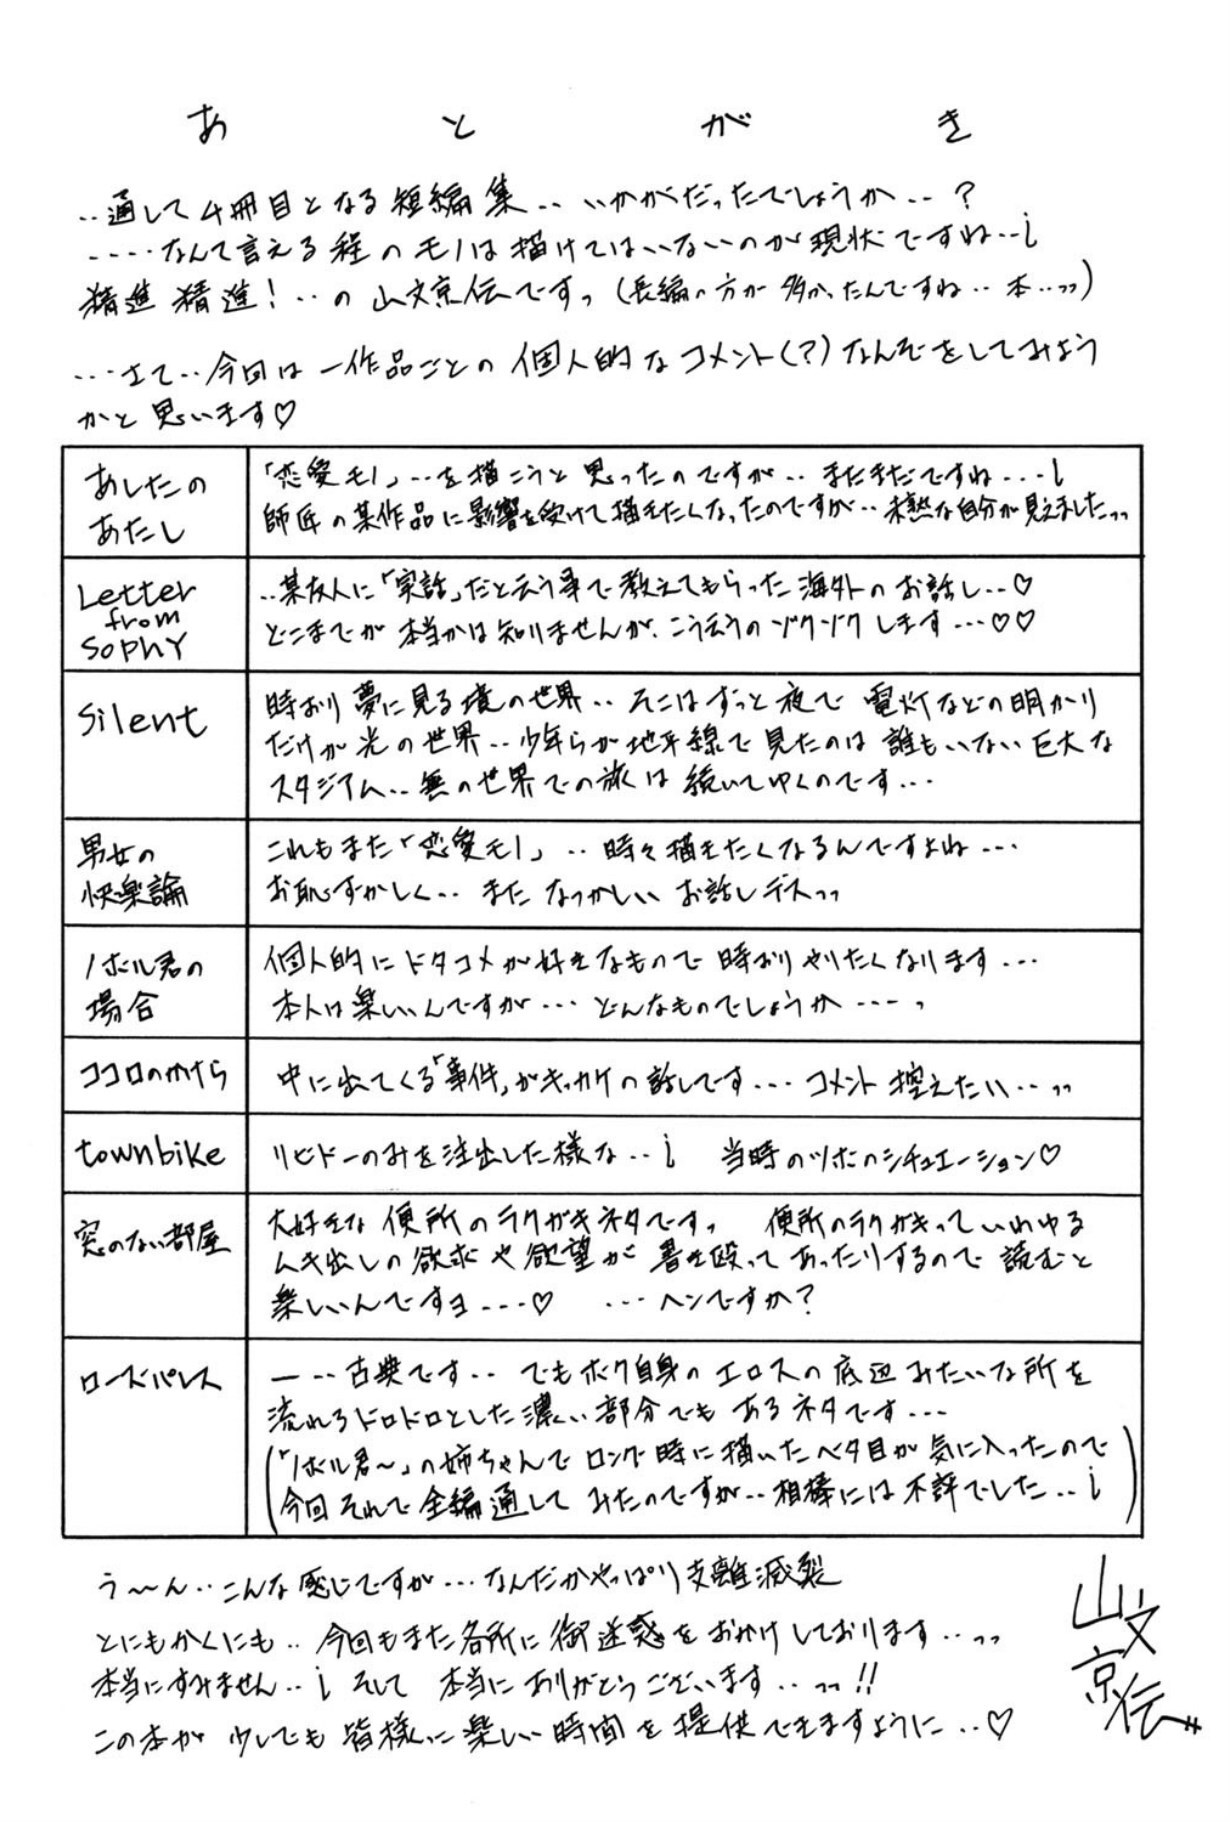 あとがき
‥通して4冊目となる短編集‥いかがだったでしょうか‥？
‥‥なんて言える程のモノは描けてはいないのが現状ですね‥¡
精進精進！‥の山文京伝ですっ（長編の方が多かったんですね‥本‥ッッ）
‥‥さて‥今回は一作品ごとの個人的なコメント（？）なんぞをしてみよう
かと思います♡
あしたの
あたし
「恋愛モノ」‥を描こうと思ったのですが‥まだまだですね‥‥¡
師匠の某作品に影響を受けて描きたくなったのですが‥未熟な自分が見えましたッッ
Letter
from
Sophy
‥某友人に「実話」だと云う事で教えてもらった海外のお話し‥♡
どこまでが本当かは知りませんが、こう云うのゾクゾクします‥‥♡♡
Silent
時おり夢に見る境の世界‥そこはずっと夜で電灯などの明かり
だけが光の世界‥少年らが地平線で見たのは誰もいない巨大な
スタジアム‥無の世界での旅は続いてゆくのです‥‥
男女の
快楽論
これもまた「恋愛モノ」‥時々描きたくなるんですよね‥‥
お恥ずかしく‥またなつかしいお話しデスッッ
ノボル君の
場合
個人的にドタコメが好きなもので時おりやりたくなります‥‥
本人は楽しいんですが‥‥どんなものでしょうか‥‥っ
ココロのかけら
中に出てくる「事件」がキッカケの話しです‥‥コメント控えたい‥ッッ
townbike
リビドーのみを注出した様な‥¡　当時のツボのシチュエーション♡
窓のない部屋
大好きな便所のラクガキネタですっ　便所のラクガキっていわゆる
ムキ出しの欲求や欲望が書き殴ってあったりするので読むと
楽しいんですヨ‥‥♡　‥‥ヘンですか？
ローズパレス
―‥古典です‥でもボク自身のエロスの底辺みたいな所を
流れるドロドロとした濃い部分でもあるネタです‥‥
（「ノボル君～」の姉ちゃんでロング時に描いたベタ目が気に入ったので
今回それで全編通してみたのですが‥相棒には不評でした‥¡）
う～ん‥こんな感じですが‥‥なんだかやっぱり支離滅裂
とにもかくにも‥今回もまた各所に御迷惑をおかけしております‥ッッ
本当にすみません‥¡そして本当にありがとうございます‥ッッ!!
この本が少しでも皆様に楽しい時間を提供できますように‥♡
山文
京伝